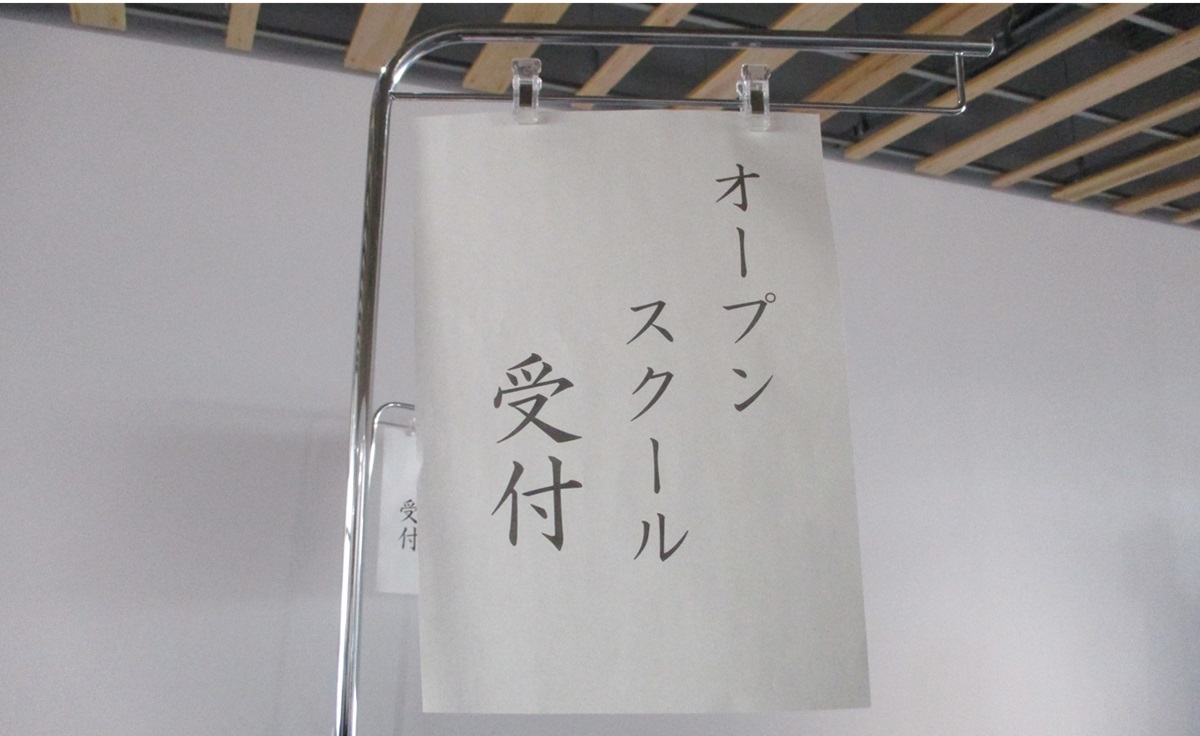 オープン
スクール
受付
受付